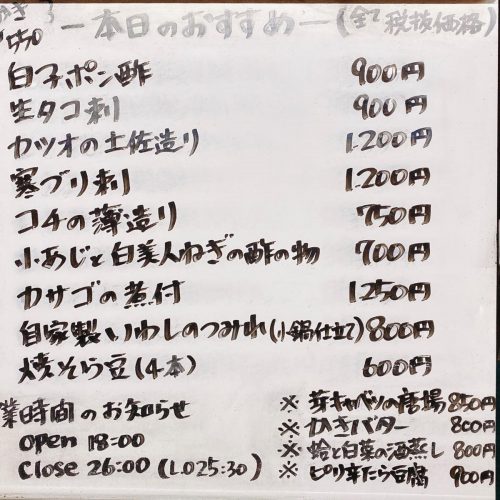 ―本日のおすすめ―(全て税抜価格)
白子ポン酢 900円
生タコ刺 900円
カツオの土佐造り 1.200円
寒ブリ刺 1.200円
コチの薄造り 750円
小あじと白美人ねぎの酢の物 700円
カサゴの煮付 1250円
自家製いわしのつみれ(小鍋仕立て) 800円
焼そら豆(4本) 600円
業時間のお知らせ
open 18:00
close 26:00 (L.O25:30)
※ 芽キャベツの唐揚 850円
※ かきバター 800円
※ 蛤と白菜の酒蒸し 800円
※ ピリ辛たら豆腐 900円